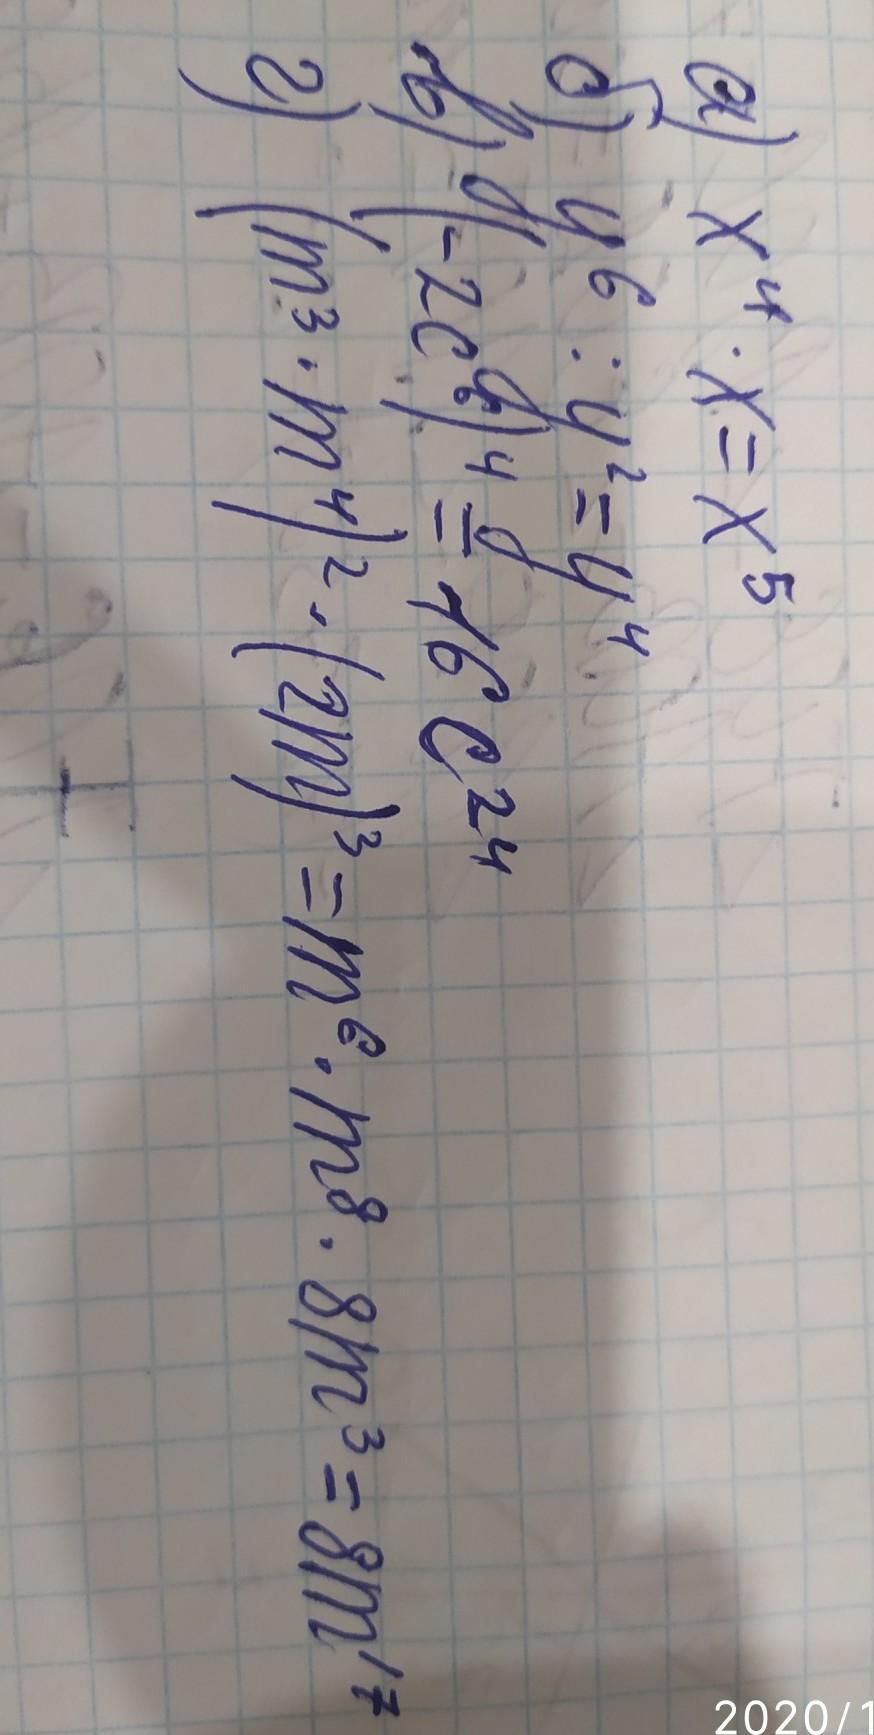 а) x⁴ · x = x⁵
б) y⁶ : y² = y⁴
в) (-2c⁶)⁴ = 16c²⁴
г) (m³ · m⁴)² · (2m)³ = m⁶ · m⁸ · 8m³ = 8m¹⁷
2020/1